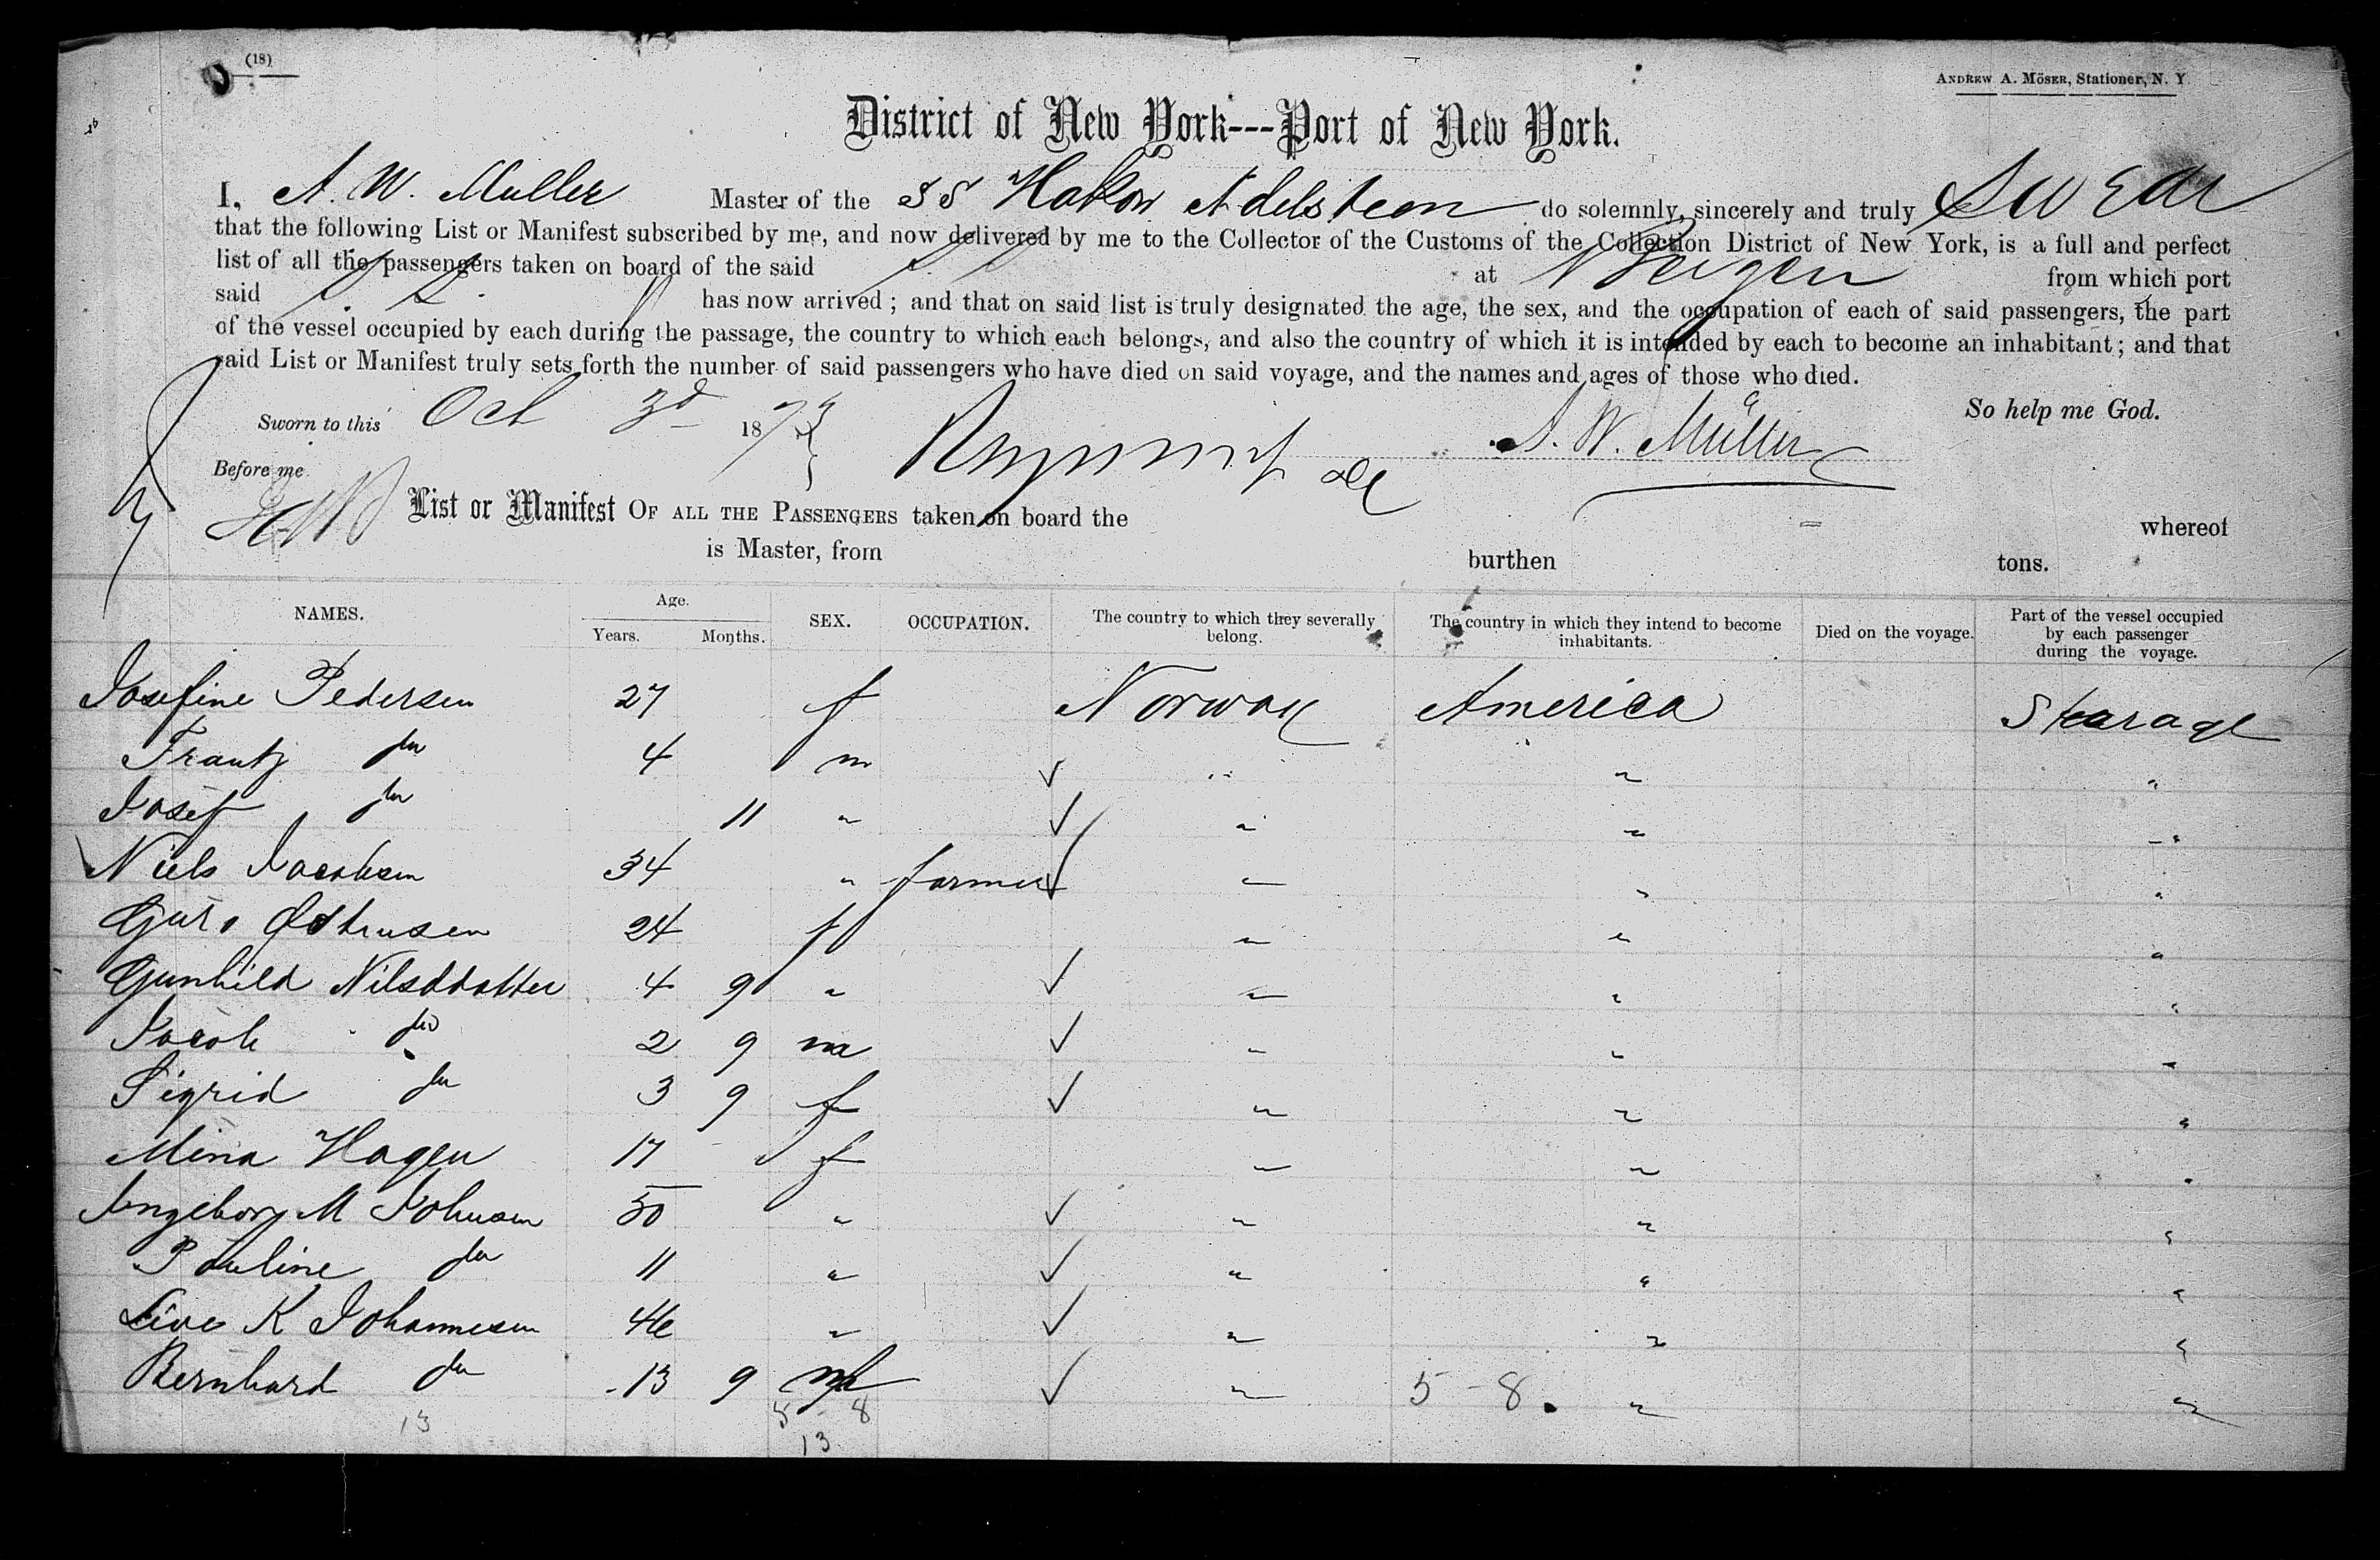 (18)
ANDREW A. MÖSER, Stationer, N. Y
District of New York---Port of New York.
I, A. W. Muller Master of the SS Hakon Adelsteen do solemnly, sincerely and truly swear
that the following List or Manifest subscribed by me, and now delivered by me to the Collector of the Customs of the Collection District of New York, is a full and perfect
list of all the passengers taken on board of the said at Bergen from which port
said has now arrived; and that on said list is truly designated the age, the sex, and the occupation of each of said passengers, the part
of the vessel occupied by each during the passage, the country to which each belongs, and also the country of which it is intended by each to become an inhabitant; and that
said List or Manifest truly sets forth the number of said passengers who have died on said voyage, and the names and ages of those who died.
So help me God.
Sworn to this Oct 3d 1873 A. W. Müller
Before me
List or Manifest OF ALL THE PASSENGERS taken on board the whereof
is Master, from burthen tons.
NAMES. Age. Years. Months. SEX. OCCUPATION. The country to which they severally belong. The country in which they intend to become inhabitants. Died on the voyage. Part of the vessel occupied by each passenger during the voyage.
Josefine Pedersen 27 f Norway America Stearage
Frantz do 4 m " " "
Josef do 11 " " " "
Niels Jacobsen 34 " farmer " " "
Guro 24 f " " "
Gunhild Nilsddatter 4 9 " " " "
Jacob do 2 9 m " " "
Sigrid do 3 9 f " " "
Mina Hagen 17 f " " "
Ingeborg M Johnsen 50 " " " "
Pauline do 11 " " " "
Live K Johannesen 46 " " " "
Bernhard do 13 9 m " 5-8. " "
13 5 - 8
13